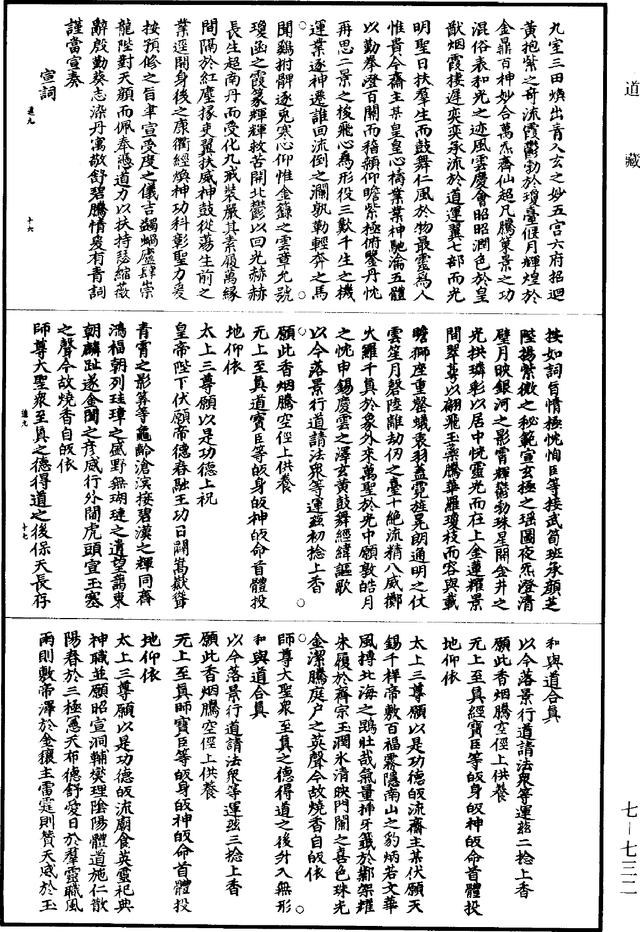 道藏
九室三田煥出青入玄之妙五宮六府招迴
黃抱紫之奇流霞鬱勃於瓊臺假月輝煌於
金鼎百神妙合萬炁齊仙超凡騰策景之功
混俗表和光之迹風雲慶會昭昭潤色於皇
猷烟霞棲遲奕奕承流於道運翼七部而光
明聖日扶羣生而鼓舞仁風於物最靈為人
惟貴今齋主某皇皇心禱業業神馳淪五體
以勤拳澄百關而稽顙仰瞻紫極俯鑒丹忱
再思二景之梭飛心為形役三歎千生之機
運業逐神遷誰回流倒之瀾孰勒輕奔之馬
聞雞拊髀逐兔寒心仰惟金籙之雲章允號
瓊函之霞篆輝輝救苦開北鬱以回光赫赫
長生超南丹而受化九戒裝嚴其素履萬緣
間隔於紅塵掾吏翼扶威神鼓從蕩生前之
業逕開身後之康衢經煥神功科彰聖力爰
按預修之旨聿宣受度之儀吉蠲蝸廬肆崇
龍陛對天顏而佩奉憑道力以扶持瑟縮薇
辭啟勤葵志染丹寓敬舒碧騰情爰有青詞
謹當宣奏
宣詞
道九 十六
按如詞旨情極恍恂臣等接武筍班承顏芝
陛揚紫微之秘範宣玄極之瑶圖夜炁澄清
壁月映銀河之影霄輝鬱勃珠星開金井之
光拱璘彩以居中恍靈光而在上金蓮耀景
間翠葵以翩飛玉藥騰華羅瓊枝而容與載
瞻獅座重整蟻衷羽蓋霓旌晃朗通明之仗
雲笙月磬陸離劫仞之臺十絕流精八威擲
火羅千真於象外來萬聖於光中願敷皓月
之忱申錫慶雲之澤玄黃鼓舞經緯謳歌
以今落景行道請法眾等運兹初捻上香
願此香烟騰空徑上供養
无上至真道寶臣等皈身皈神皈命首體投
地仰依
太上三尊願以是功德上祝
皇帝陛下伏願帝德春融王功日闢嵩嶽聳
青霄之影筭等龜齡滄溟接碧漢之輝同齊
鴻福朝列珪璋之盛野無瑚璉之遺望藹東
朝麟趾遂金閨之彥威行外閫虎頭宣玉塞
之聲今故燒香自皈依
師尊大聖眾至真之德得道之後保天長存
道九 十七
和與道合真
以今落景行道請法眾等運兹二捻上香
願此香烟騰空徑上供養
无上至真經寶臣等皈身皈神皈命首體投
地仰依
太上三尊願以是功德皈流齋主某伏願天
錫千祥帝敷百福霧隱南山之豹炳若文華
風摶北海之鵾壯哉氣量插牙籤於鄴架耀
朱履於齊宗玉潤氷清映門闌之喜色珠光
金潔騰庭户之英聲今故燒香自皈依
師尊大聖眾至真之德得道之後升入無形
和與道合真
以今落景行道請法眾等運兹三捻上香
願此香烟騰空徑上供養
无上至真師寶臣等皈身皈神皈命首體投
地仰依
太上三尊願以是功德皈流廟食英靈祀典
神職並願昭宣洞輔燮理陰陽體道施仁散
陽春於三極憲天布德舒愛日於羣靈職風
雨則敷帝澤於金穰主雷霆則贊天威於玉
七－七三二